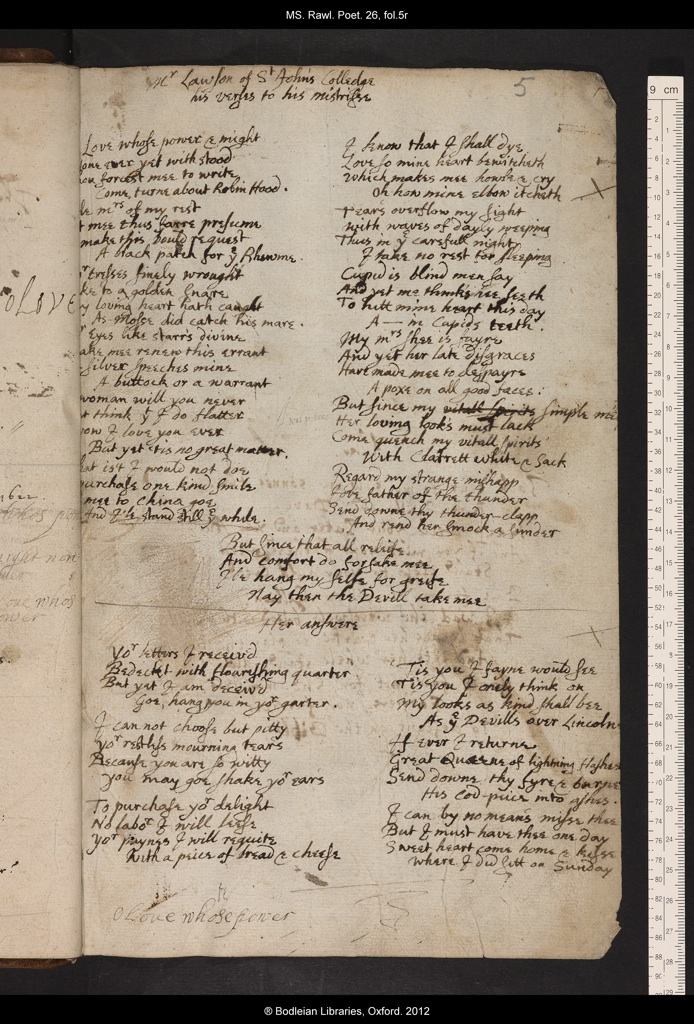 MS. Rawl. Poet. 26, fol.5r
5
Mr Lawson of St Johns Colledge
his verses to his mistrisse
Love whose power & might
one ever yet withstood
ou forcest mee to write
Come, turne about Robin Hood.
le mrs of my rest
t mee thus farre presume
make this bould request
A black patch for ye Rhewme.
tresses finely wrought
ke to a golden snare
y loving heart hath caught
As Mosse did catch his mare.
Eyes like starrs divine
ake mee renew this errant
silver speeches mine
A buttock or a warrant
woman will you never
t think yt I do flatter
ow I love you ever
But yet tis no great matter.
at is't I would not doe
urchase one kind smile
mee to China goe
And I'le stand still ye while.
I know that I shall dye
Love so mine heart bewitcheth
Which makes mee howle & cry
Oh how mine elbow itcheth
Teares overflow my sight
with waves of dayly weeping
Thus in ye carefull night
I take no rest for sleeping
Cupid is blind men say
And yet me thinks hee seeth
To hitt mine heart this day
A — in Cupids teeth.
My mrs shee is fayre
And yet her late disgraces
Have made mee to despayre
A poxe on all good faces:
But since my vitall spirits simple me
Her loving looks must lack
Come quench my vitall spirits
With Clarrett white & Sack
Regard my strange mishapp
Jove father of the thunder
Send downe thy thunder-clapp
And rend her smock a sunder
But since that all releife
And comfort do forsake mee
I'le hang my selfe for greife
Nay then the Devill take mee
Her answere
Yor letters I receivd
Bedeckt with flourishing quarter
But yet I am deceivd
Goe, hang you in yor garter.
I can not choose but pitty
Yor restless mourning tears
Because you are so witty
You may goe shake yor ears
To purchase yor delight
No labor I will leese
Yor paynes I will requite
With a peice of bread & cheese
Tis you I fayne would see
Tis you I onely think on
My looks as kind shall bee
As ye Devills over Lincoln
If ever I returne
Great Queene of lightning flashes
Send downe thy fyre & burne
His cod-peice into ashes.
I can by no means misse thee
But I must have thee one day
Sweet heart come home & kisse
where I did sitt on Sunday
O Love whose power
O LOVE
® Bodleian Libraries, Oxford. 2012
9 cm